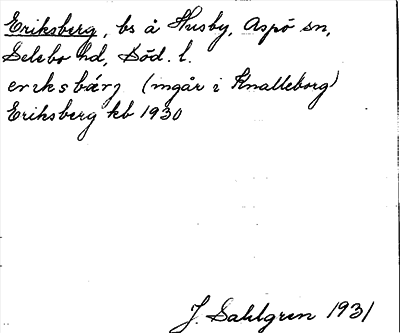 Eriksberg, bs å Husby, Aspö sn,
Selebo hd, Söd. l.
eriksbärj (ingår i Knalleborg)
Eriksberg kb 1930
J. Sahlgren 1931